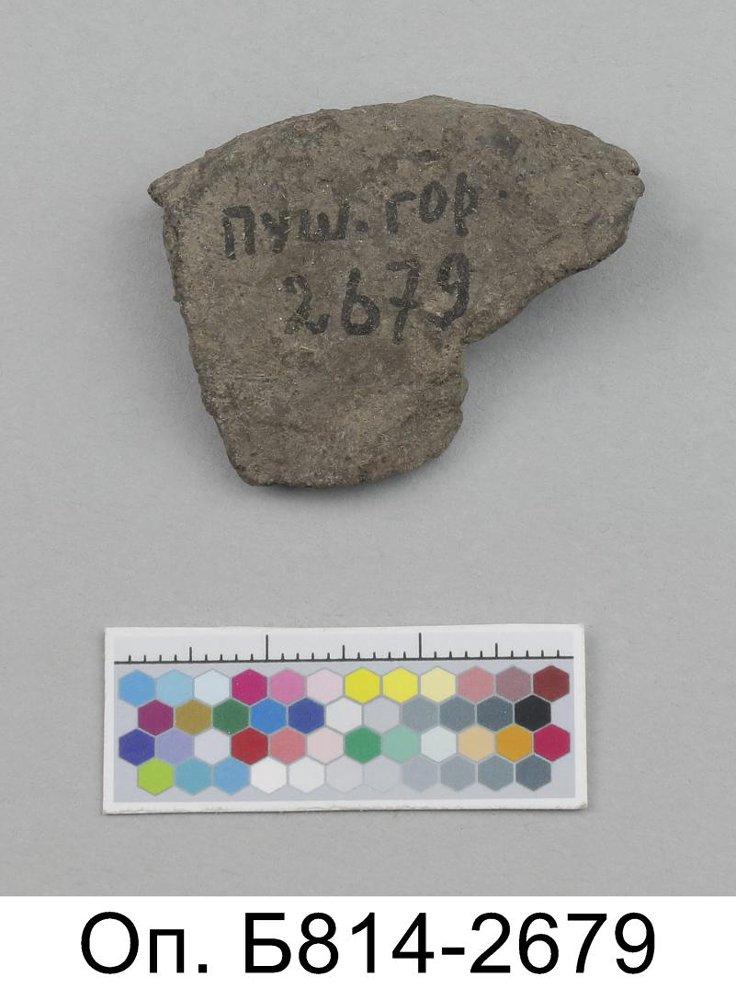 пуш. гор.
2679
Оп. Б814-2679